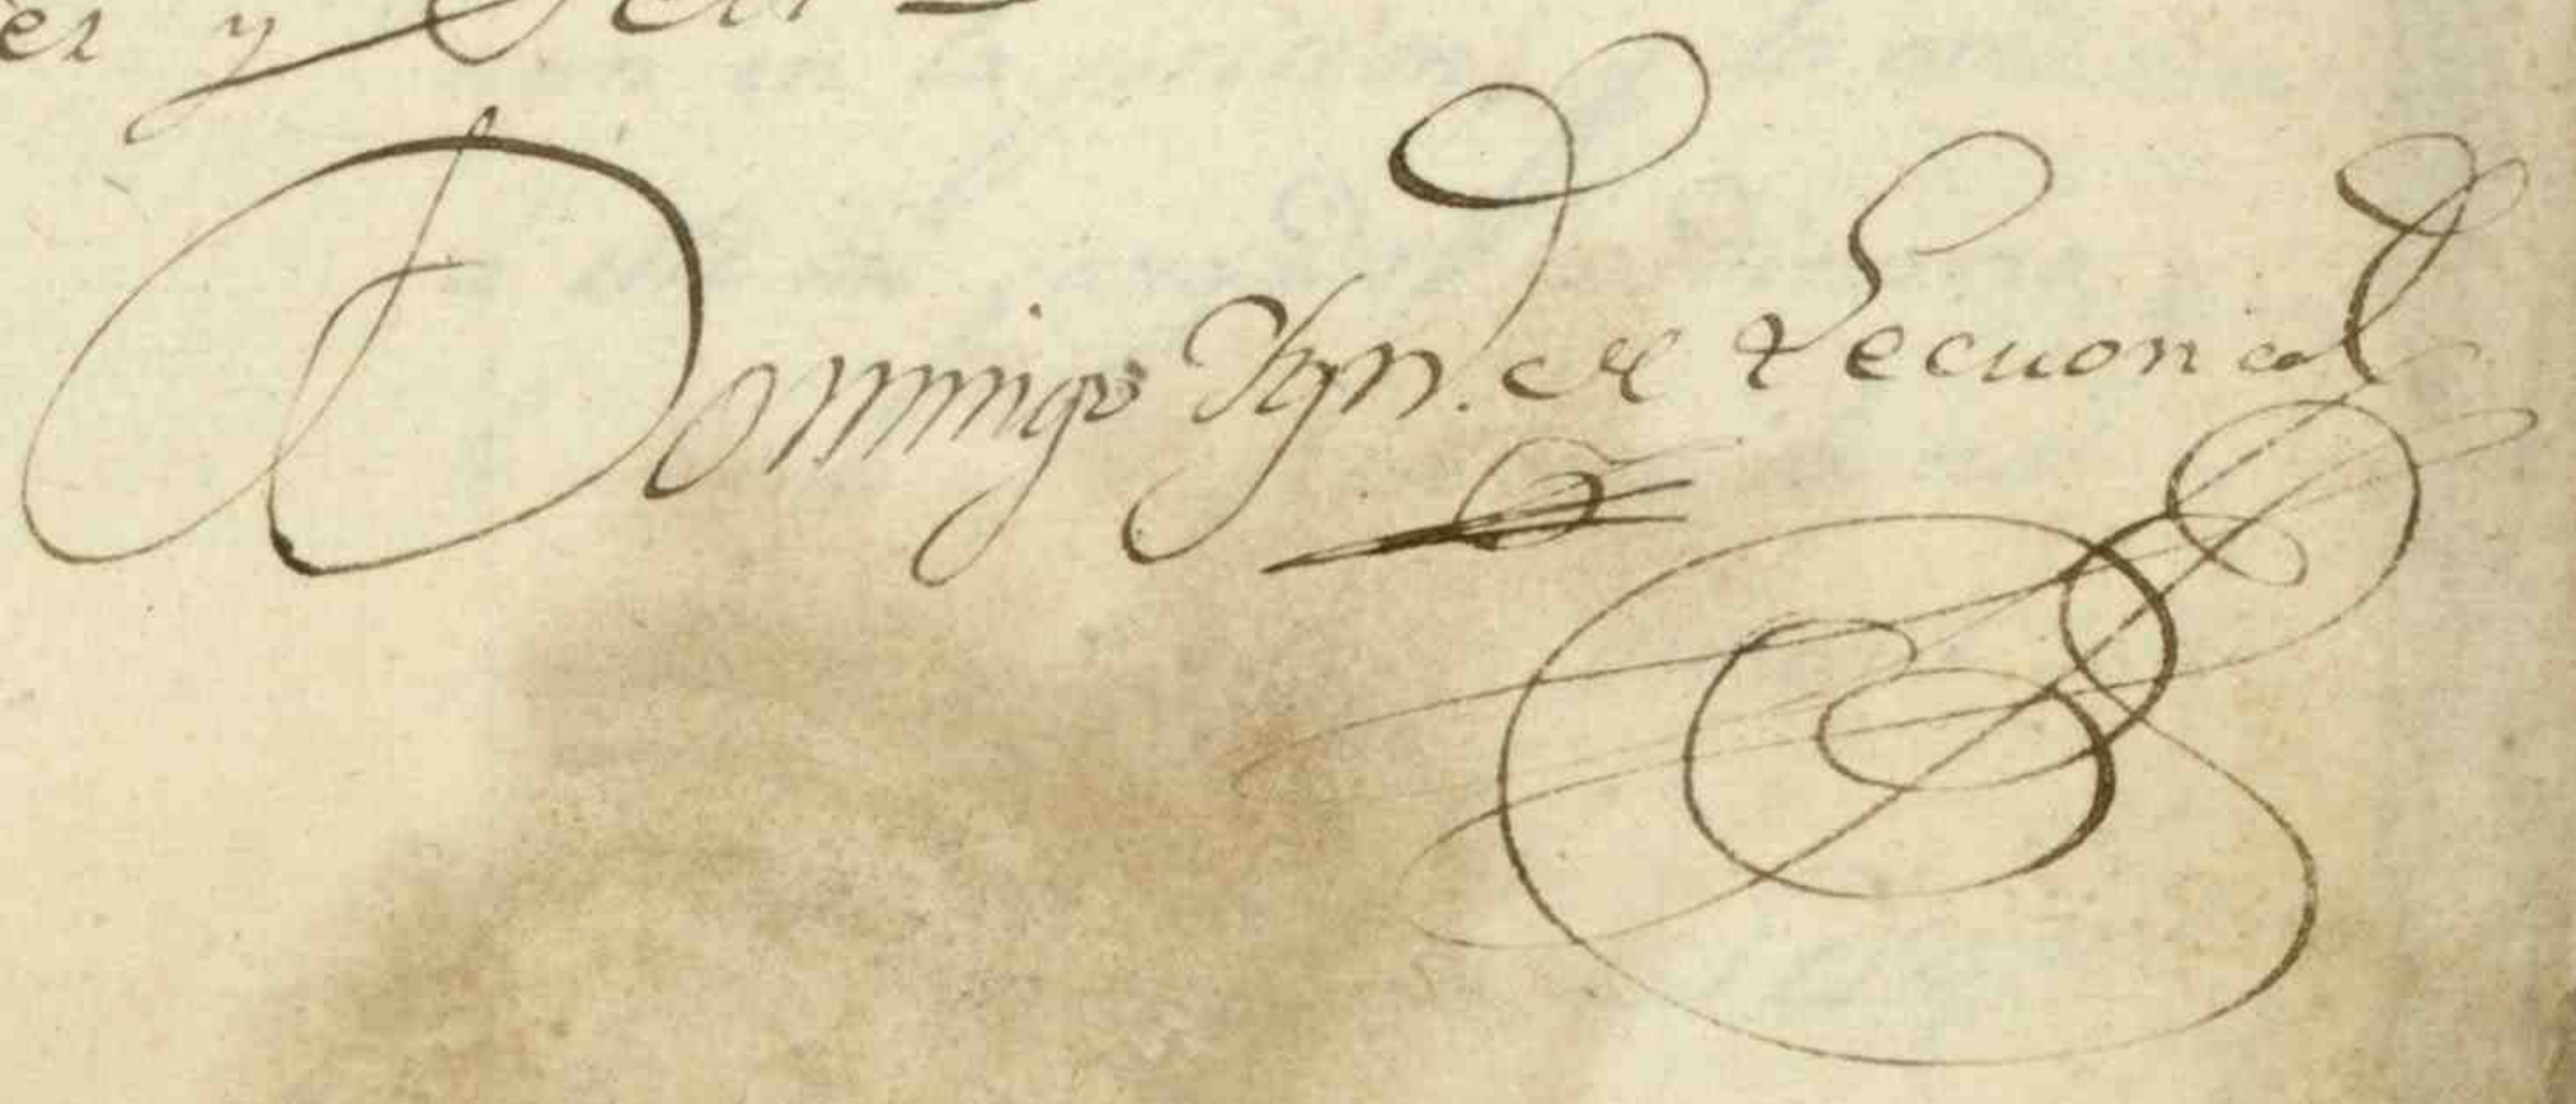 y
Domingo Ygn. de Lecuona